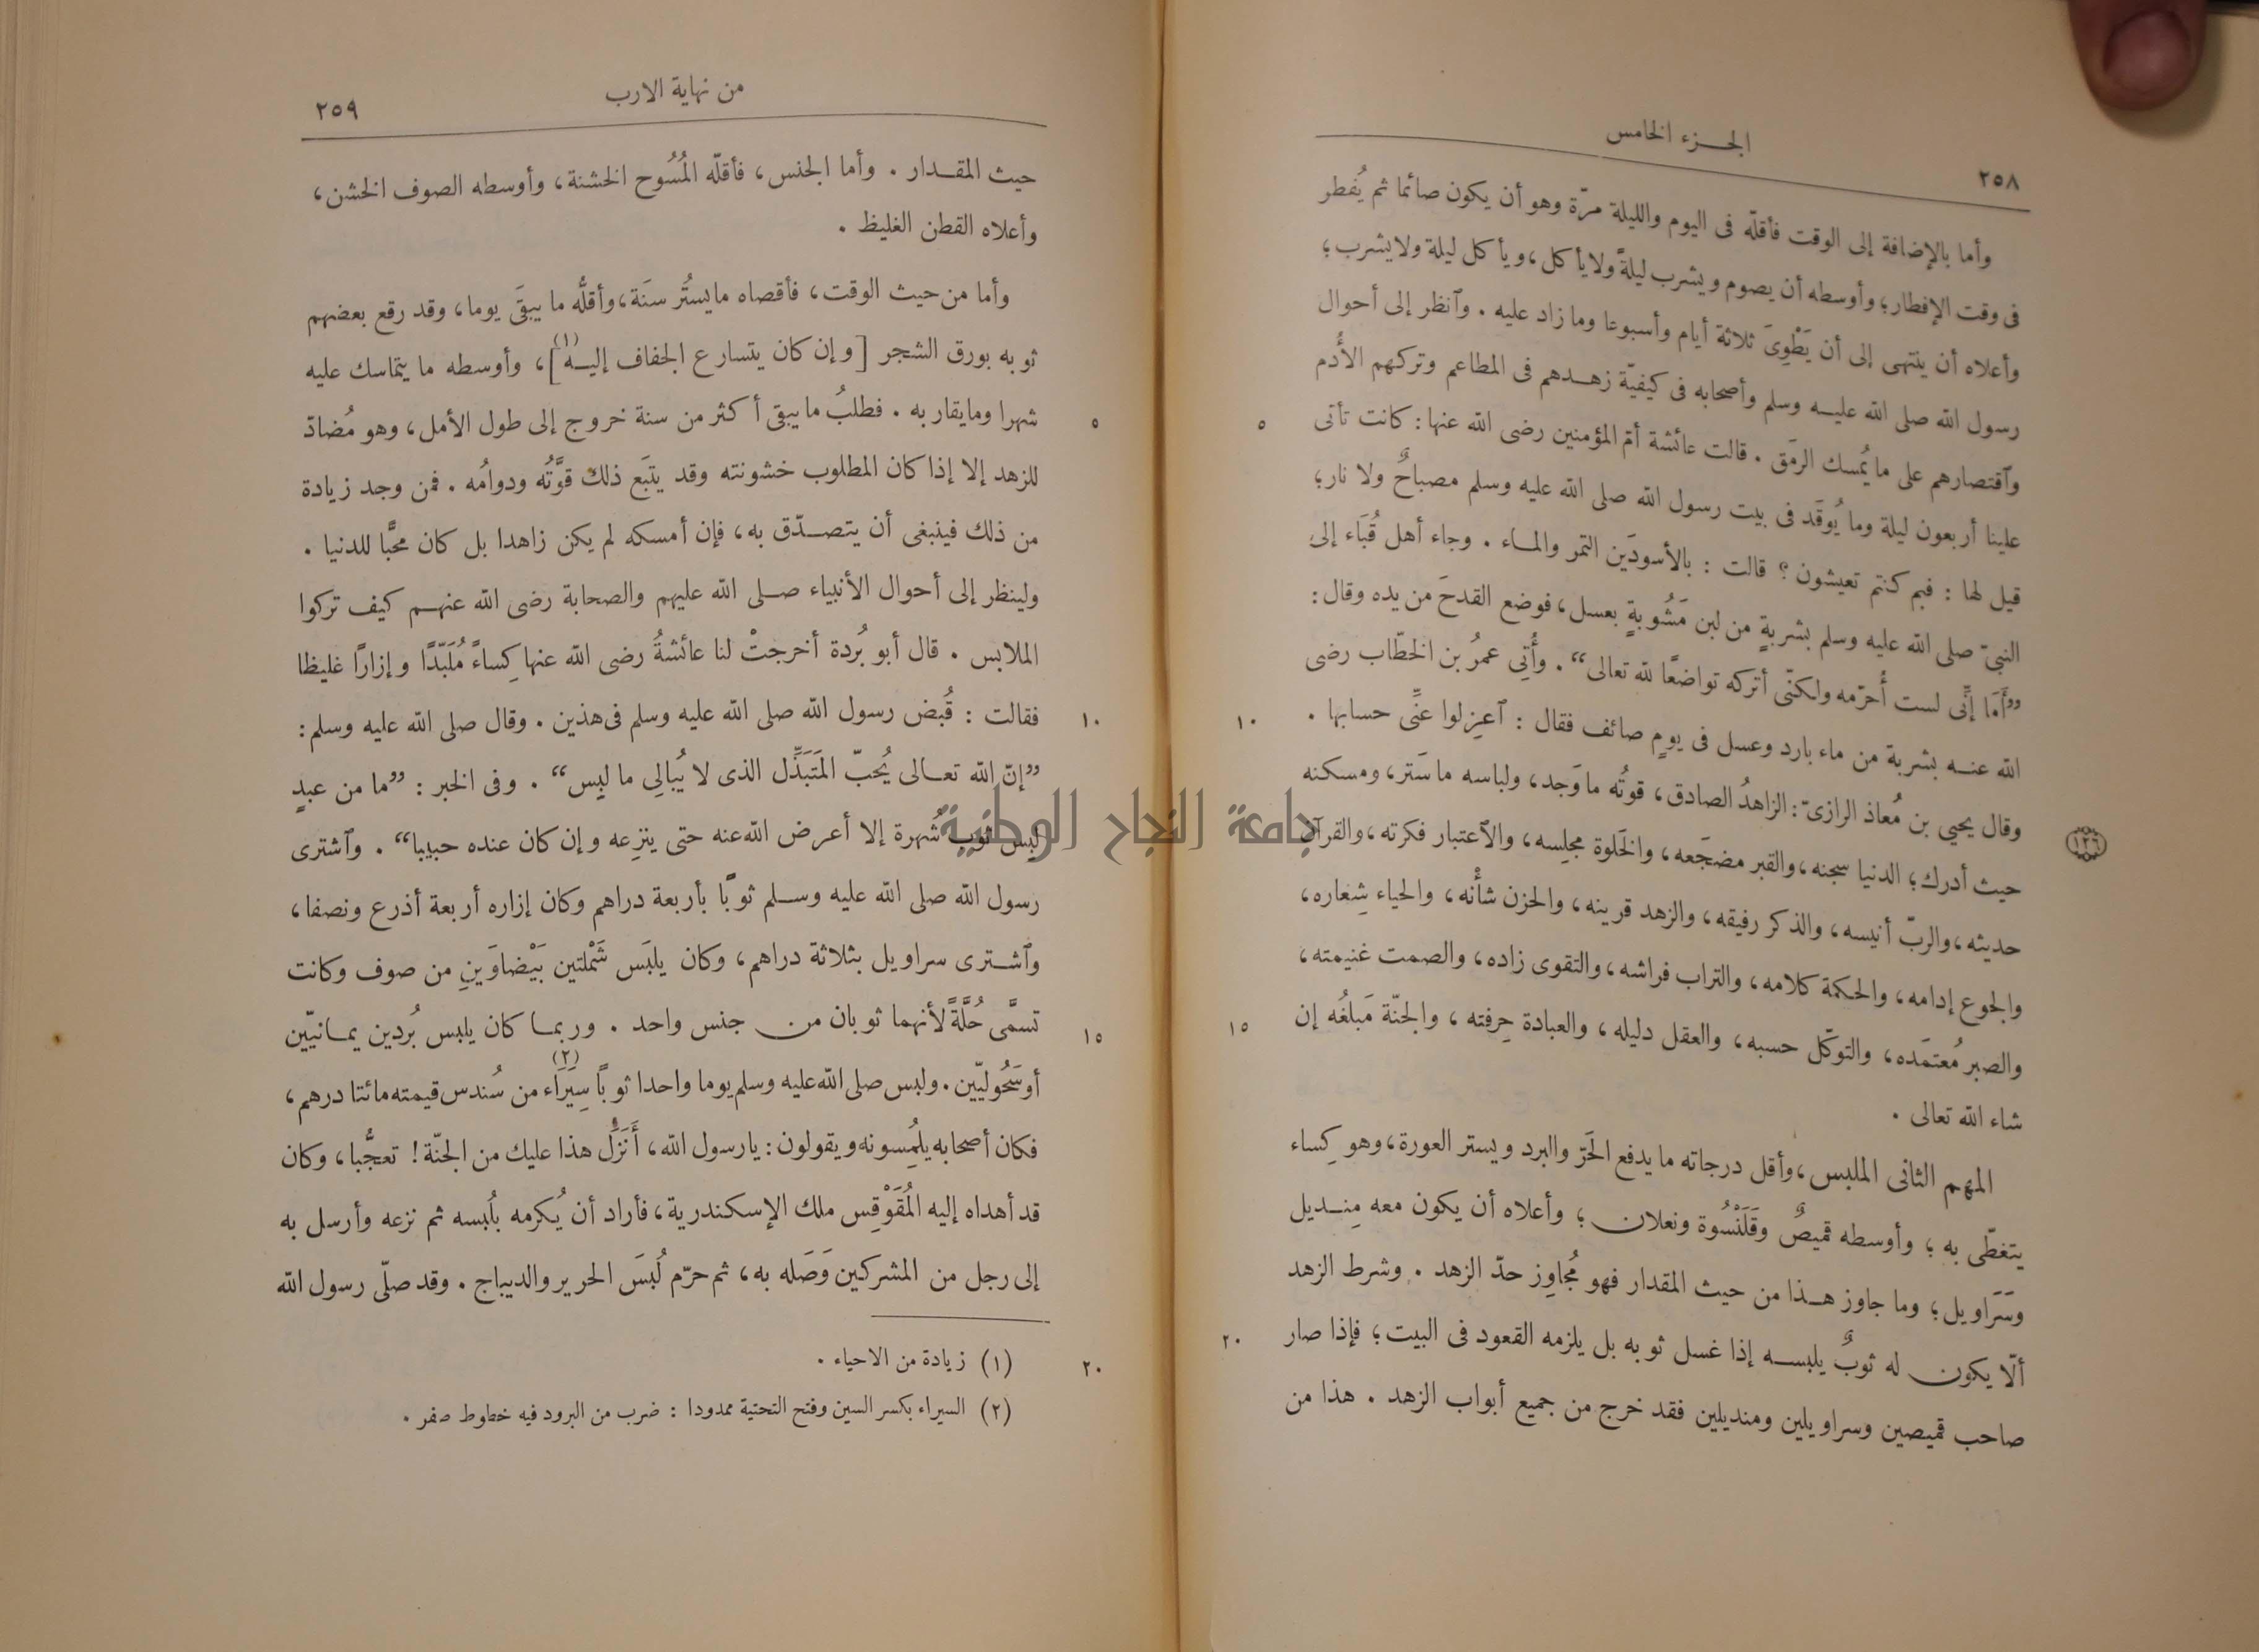 ٢٥٨
الجزء الخامس
وأما بالإضافة إلى الوقت فأقلّه فى اليوم والليلة مرّة وهو أن يكون صائما ثم يُفطر
فى وقت الإفطار؛ وأوسطه أن يصوم ويشرب ليلةً ولا يأكل، ويأكل ليلة ولا يشرب؛
وأعلاه أن ينتهى إلى أن يَطْوِىَ ثلاثة أيام وأسبوعا وما زاد عليه . وٱنظر إلى أحوال
رسول الله صلى الله عليه وسلم وأصحابه فى كيفيّة زهدهم فى المطاعم وتركهم الأُدم
وٱقتصارهم على ما يُمسك الرمَق . قالت عائشة أمّ المؤمنين رضى الله عنها: كانت تأتى
٥
علينا أربعون ليلة وما يُوقَد فى بيت رسول الله صلى الله عليه وسلم مصباحٌ ولا نار؛
قيل لها : فبم كنتم تعيشون ؟ قالت : بالأسودَين التمر والماء . وجاء أهل قُبَاء إلى
النبىّ صلى الله عليه وسلم بشربةٍ من لبن مَشُوبةٍ بعسل، فوضع القدحَ من يده وقال:
”أَمَا إنِّى لست أُحرّمه ولكنّى أتركه تواضعًا لله تعالى“ . وأُتِى عمرُ بن الخطّاب رضى
الله عنه بشربة من ماء بارد وعسل فى يومٍ صائف فقال : ٱعزِلوا عنِّى حسابها .
١٠
وقال يحيى بن مُعاذ الرازىّ: الزاهدُ الصادق، قوتُه ما وَجد، ولباسه ما سَتر، ومسكنه
حيث أدرك؛ الدنيا سجنه، والقبر مضجَعه، والخَلوة مجلِسه، والٱعتبار فكرته، والقرآن
١٢٦
حديثه، والربّ أنيسه، والذكر رفيقه، والزهد قرينه، والحزن شأنه، والحياء شِعاره،
والجوع إدامه، والحكمة كلامه، والتراب فراشه، والتقوى زاده، والصمت غنيمته،
والصبر مُعتمَده، والتوكّل حسبه، والعقل دليله، والعبادة حِرفته، والجنّة مَبلغُه إن
١٥
شاء الله تعالى .
المهم الثانى الملبس، وأقل درجاته ما يدفع الحَرّ والبرد ويستر العورة، وهو كِساء
يتغطّى به ؛ وأوسطه قميصٌ وقَلَنْسُوة ونعلان ؛ وأعلاه أن يكون معه مِنديل
وسَرَاويل؛ وما جاوز هذا من حيث المقدار فهو مُجاوِز حدّ الزهد . وشرط الزهد
ألّا يكون له ثوبٌ يلبسه إذا غسل ثوبه بل يلزمه القعود فى البيت؛ فإذا صار
٢٠
صاحب قميصين وسراويلين ومنديلين فقد خرج من جميع أبواب الزهد . هذا من
من نهاية الارب
٢٥٩
حيث المقدار . وأما الجنس، فأقلّه المُسُوح الخشنة، وأوسطه الصوف الخشن،
وأعلاه القطن الغليظ .
وأما من حيث الوقت، فأقصاه ما يستُر سنَة، وأقلُّه ما يبقَى يوما، وقد رقع بعضهم
ثوبه بورق الشجر [وإن كان يتسارع الجفاف إليه](١)، وأوسطه ما يتماسك عليه
شهرا وما يقاربه . فطلبُ ما يبقى أكثر من سنة خروج إلى طول الأمل، وهو مُضادّ
٥
للزهد إلا إذا كان المطلوب خشونته وقد يتبَع ذلك قوَّتُه ودوامُه . فمن وجد زيادة
من ذلك فينبغى أن يتصدّق به، فإن أمسكه لم يكن زاهدا بل كان محبًّا للدنيا .
ولينظر إلى أحوال الأنبياء صلى الله عليهم والصحابة رضى الله عنهم كيف تركوا
الملابس . قال أبو بُردة أخرجتْ لنا عائشةُ رضى الله عنها كِساءً مُلَبّدًا وإزارًا غليظا
فقالت : قُبض رسول الله صلى الله عليه وسلم فى هذين . وقال صلى الله عليه وسلم:
١٠
”إنّ الله تعالى يُحبّ المَتَبَذِّل الذى لا يُبالِى ما لبِس“ . وفى الخبر : ”ما من عبدٍ
لبِس ثوب شُهرة إلا أعرض الله عنه حتى ينزِعه وإن كان عنده حبيبا“ . وٱشترى
رسول الله صلى الله عليه وسلم ثوبًا بأربعة دراهم وكان إزاره أربعة أذرع ونصفا،
وٱشترى سراويل بثلاثة دراهم، وكان يلبَس شَمْلتين بَيْضاوَينِ من صوف وكانت
تسمَّى حُلَّةً لأنهما ثوبان من جنس واحد . وربما كان يلبس بُردين يمانيّين
١٥
أو سَحُوليّين . ولبس صلى الله عليه وسلم يوما واحدا ثوبًا سِيَرَاء(٢) من سُندس قيمته مائتا درهم،
فكان أصحابه يلمِسونه ويقولون : يا رسول الله، أَنَزَلَ هذا عليك من الجنّة ! تعجُّبا، وكان
قد أهداه إليه المُقَوْقِس ملك الإسكندرية، فأراد أن يُكرمه بلُبسه ثم نزعه وأرسل به
إلى رجل من المشركين وَصَله به، ثم حرّم لُبسَ الحرير والديباج . وقد صلّى رسول الله
(١) زيادة من الاحياء .
٢٠
(٢) السيراء بكسر السين وفتح التحتية ممدودا : ضرب من البرود فيه خطوط صفر .
جامعة النجاح الوطنية